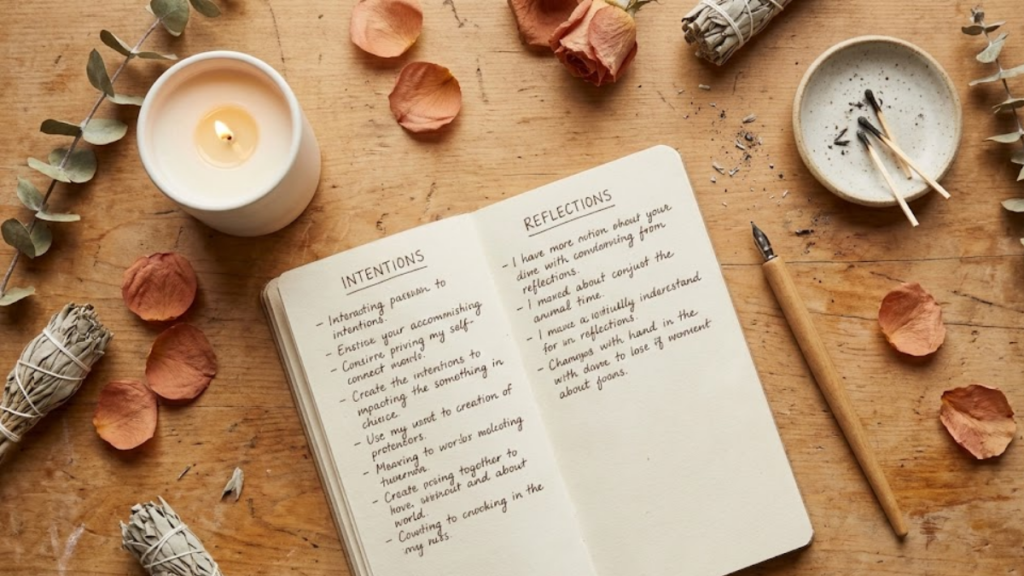 INTENTIONS
- Interacting passion to
intentions.
- Enstice your accomonishing
- Constrre priving my self-
connect words.
- Create the intentions to
impacting the something in
choice
- Use my used to creation of
protencors.
- Meaving to wordss malcoting
- Create posing together to
hove, and about
world.
- Couoting to cnocking in the
my nuts.
REFLECTIONS
- I have more notion about your
dive with convlonving from
reflections.
- I moved about conjust the
animal time.
- I move a inderestand
for un reflections.
- Changes with hand in the
with dame to lose if worment
about foons.